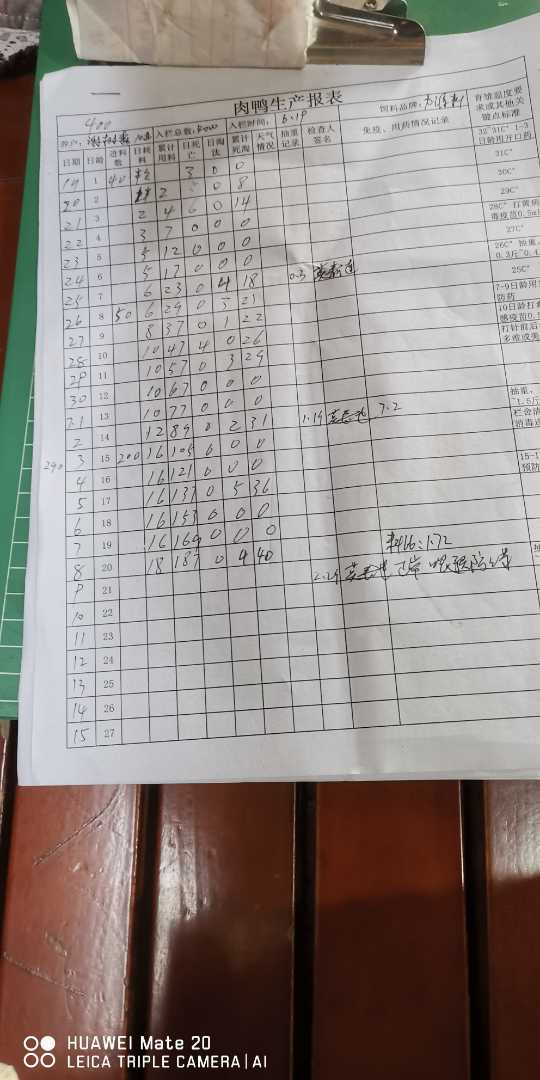 肉鸭生产报表
400
养户: 入栏总数: 入栏时间: 6.19 饲料品牌:
日期 日龄 进料数 日耗料 累计用料 日死亡 日淘汰 累计死淘 天气情况 抽重记录 检查人签名 免疫、用药情况记录 育雏温度要求或其他关键点标准
19 1 40 3 0 0 32°31C° 1-3日龄用开口药
20 2 2 0 8 31C°
21 3 2 4 6 0 14 30C°
22 4 3 7 0 0 0 29C°
23 5 5 12 0 0 0 28C° 打黄病毒疫苗0.5m
24 6 5 17 0 0 0 27C°
25 7 6 23 0 4 18 0.3 26C° 抽重, 0.3斤~0.4
26 8 50 6 29 0 3 21 25C°
27 9 8 37 0 1 22 7-9日龄用 防药
28 10 10 47 4 0 26 10日龄打 感疫苗0.
29 11 10 57 0 3 29 打针前后 多维或
30 12 10 67 0 0 0
7.1 13 10 77 0 0 0
2 14 12 89 0 2 31 1.14 7.2 抽重, ~1.5斤 栏舍清 消毒
290 3 15 200 16 105 0 0 0
4 16 16 121 0 0 0 15-1 预防
5 17 16 137 0 5 36
6 18 16 153 0 0 0
7 19 16 169 0 0 0
8 20 18 187 0 4 40 料比:1.72
9 21
10 22
11 23
12 24
13 25
14 26
15 27
HUAWEI Mate 20
LEICA TRIPLE CAMERA | AI